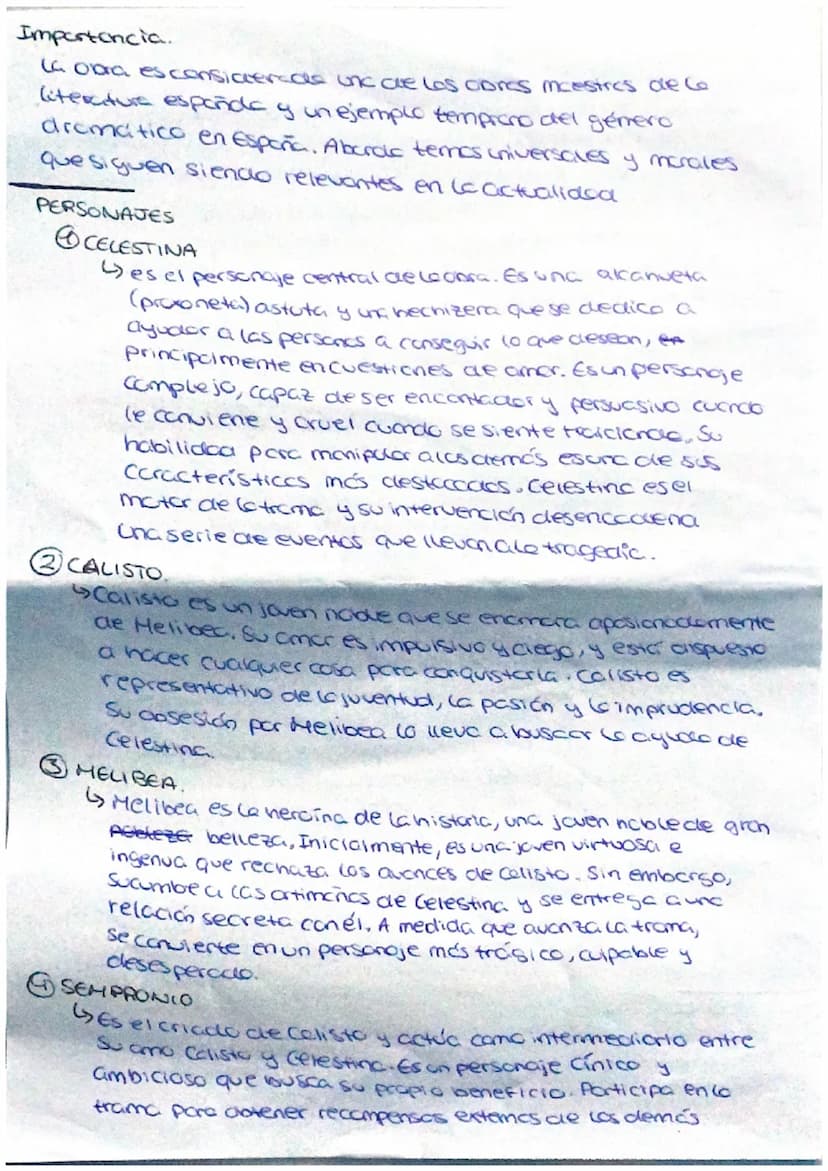 Importancia.
La obra es considerada una de las obras maestras de la
literatura española y un ejemplo temprano del género
dramático en España. Aborda temas universales y morales
que siguen siendo relevantes en la actualidad
PERSONAJES
① CELESTINA
↳ es el personaje central de la obra. Es una alcahueta
(proxoneta) astuta y una hechizera que se dedica a
ayudar a las personas a conseguir lo que desean, en
principalmente en cuestiones de amor. Es un personaje
complejo, capaz de ser encantador y persuasivo cuando
le conviene y cruel cuando se siente traicionada. Su
habilidad para manipular a los demás es una de sus
características más destacadas. Celestina es el
motor de la trama y su intervención desencadena
una serie de eventos que llevan a la tragedia.
② CALISTO.
↳ Calisto es un joven noble que se enamora apasionadamente
de Melibea. Su amor es impulsivo y ciego, y está dispuesto
a hacer cualquier cosa para conquistarla. Calisto es
representativo de la juventud, la pasión y la imprudencia.
Su obsesión por Melibea lo lleva a buscar la ayuda de
Celestina.
③ MELIBEA.
↳ Melibea es la heroína de la historia, una joven noble de gran
belleza, Inicialmente, es una joven virtuosa e
ingenua que rechaza los avances de Calisto. Sin embargo,
sucumbe a las artimañas de Celestina y se entrega a una
relación secreta con él. A medida que avanza la trama,
se convierte en un personaje más trágico, culpable y
desesperado.
④ SEMPRONIO
↳ Es el criado de Calisto y actúa como intermediario entre
su amo Calisto y Celestina. Es un personaje cínico y
ambicioso que busca su propio beneficio. Participa en la
trama para obtener recompensas externas de los demás